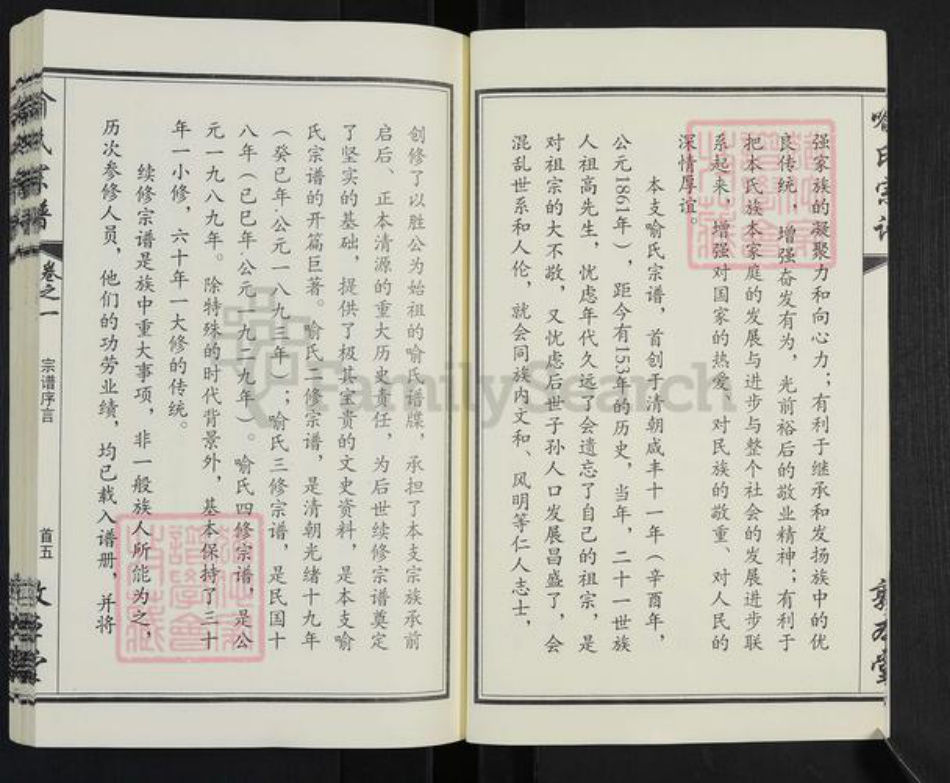 强家族的凝聚力和向心力;有利于继承和发扬族中的优
良传统,增强奋发有为,光前裕后的敬业精神;有利于
把本氏族本家庭的发展与进步与整个社会的发展进步联
系起来,增强对国家的热爱、对民族的敬重、对人民的
深情厚谊。
本支喻氏宗谱,首创于清朝咸丰十一年(辛酉年,
公元1861年),距今有153年的历史,当年,二十一世族
人祖高先生,忧虑年代久远了会遗忘了自己的祖宗,是
对祖宗的大不敬,又忧虑后世子孙人口发展昌盛了,会
混乱世系和人伦,就会同族内文和、风明等仁人志士,
创修了以胜公为始祖的喻氏谱牒,承担了本支宗族承前
启后、正本清源的重大历史责任,为后世续修宗谱奠定
了坚实的基础,提供了极其宝贵的文史资料,是本支喻
氏宗谱的开篇巨著。喻氏二修宗谱,是清朝光绪十九年
(癸巳年·公元一八九三年);喻氏三修宗谱,是民国十
八年(己巳年·公元一九二九年)。喻氏四修宗谱,是公
元一九八九年。除特殊的时代背景外,基本保持了三十
年一小修,六十年一大修的传统。
续修宗谱是族中重大事项,非一般族人所能为之,
历次参修人员,他们的功劳业绩,均已载入谱册,并将
卷之一
宗谱序言
首五
FamilySearch